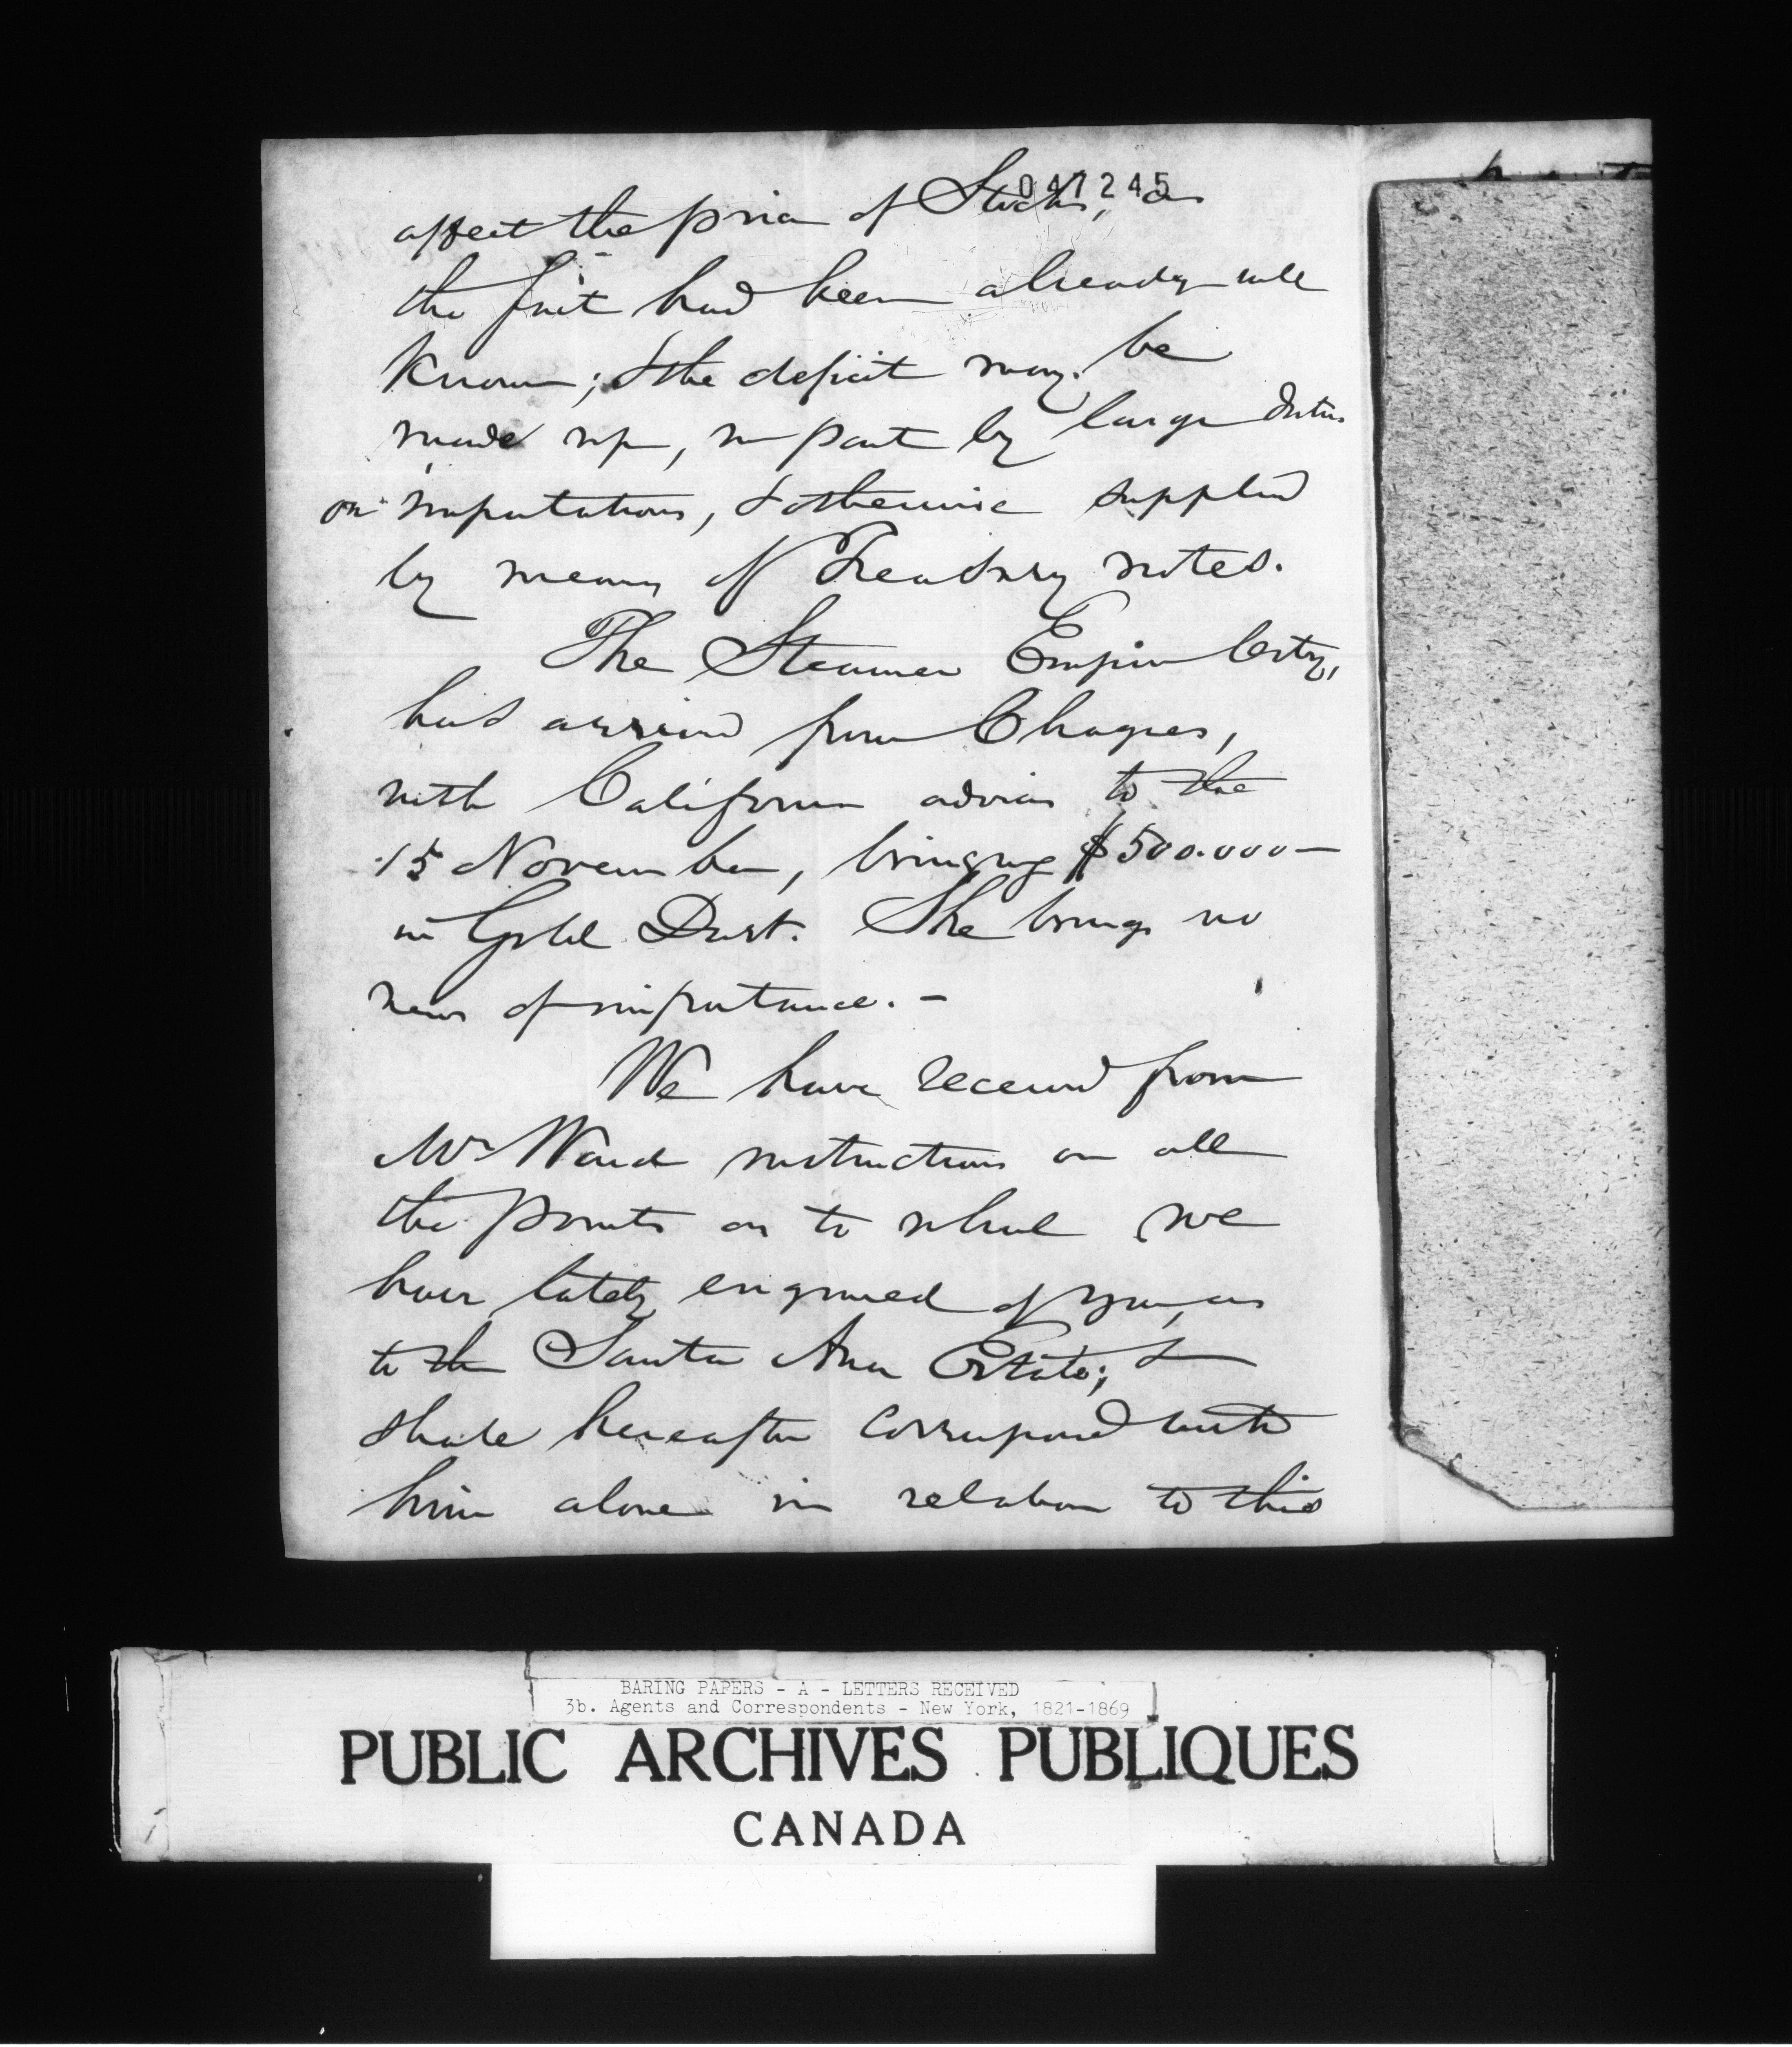 047245
affect the price of Stocks, as
the fact had been already well
Known; & the deficit may be
made up, in part by large duties
on importations, & otherwise supplied
by means of Treasury notes.
The Steamer Empire City,
has arrived from Chagres,
with California advices to the
15 November, bringing $500.000—
in Gold Dust. She brings no
news of importance. —
We have received from
Mr Ward instructions on all
the points as to which we
have lately enquired of you, as
to the Santa Ana Estate; &
shall hereafter correspond with
him alone in relation to this
BARING PAPERS - A - LETTERS RECEIVED
3b. Agents and Correspondents - New York, 1821-1869
PUBLIC ARCHIVES PUBLIQUES
CANADA